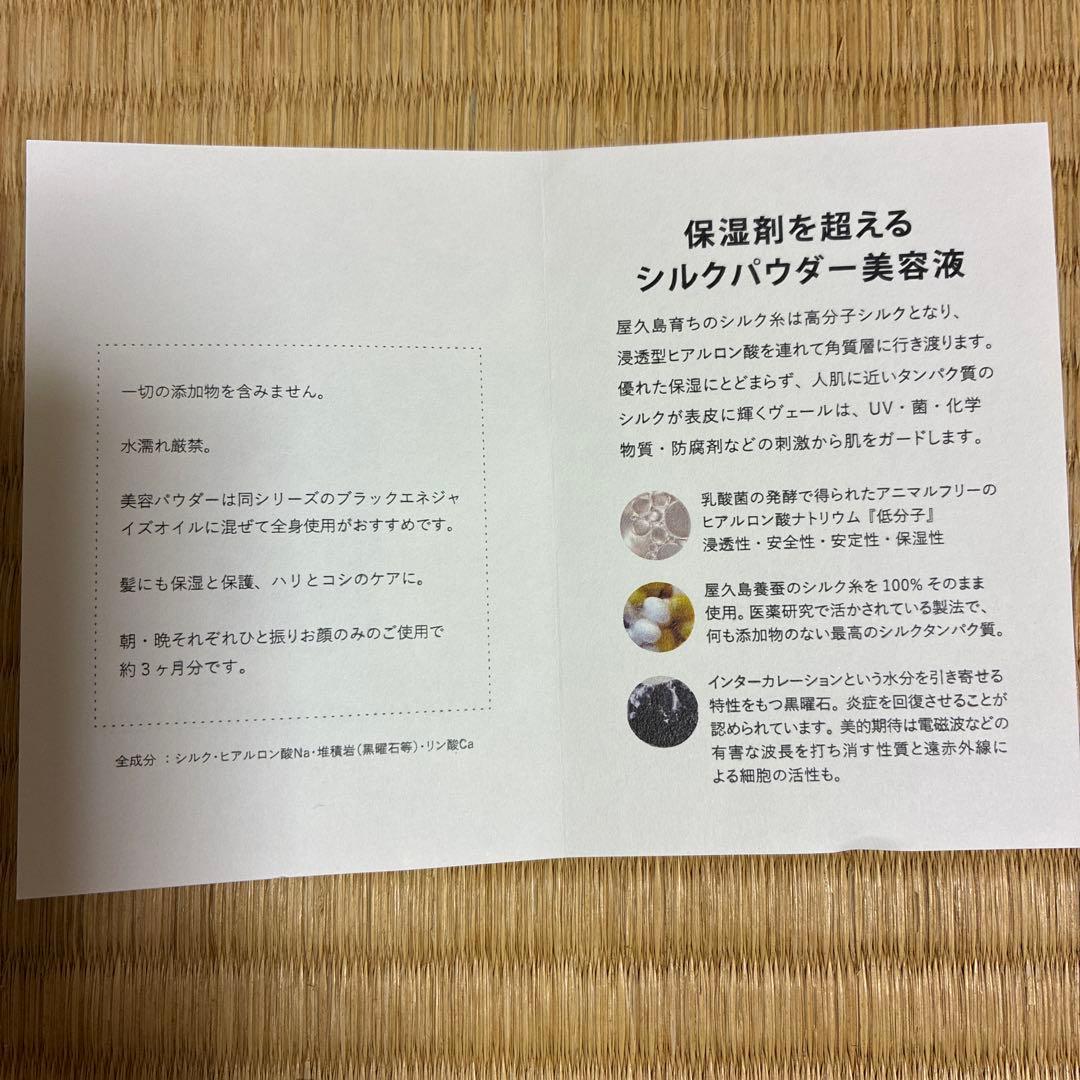 一切の添加物を含みません。
水濡れ厳禁。
美容パウダーは同シリーズのブラックエネジャ
イズオイルに混ぜて全身使用がおすすめです。
髪にも保湿と保護、ハリとコシのケアに。
朝・晩それぞれひと振りお顔のみのご使用で
約3ヶ月分です。
全成分 : シルク・ヒアルロン酸Na・堆積岩(黒曜石等)・リン酸Ca
保湿剤を超える
シルクパウダー美容液
屋久島育ちのシルク糸は高分子シルクとなり、
浸透型ヒアルロン酸を連れて角質層に行き渡ります。
優れた保湿にとどまらず、人肌に近いタンパク質の
シルクが表皮に輝くヴェールは、UV・菌・化学
物質・防腐剤などの刺激から肌をガードします。
乳酸菌の発酵で得られたアニマルフリーの
ヒアルロン酸ナトリウム『低分子』
浸透性・安全性・安定性・保湿性
屋久島養蚕のシルク糸を100%そのまま
使用。医薬研究で活かされている製法で、
何も添加物のない最高のシルクタンパク質。
インターカレーションという水分を引き寄せる
特性をもつ黒曜石。炎症を回復させることが
認められています。美的期待は電磁波などの
有害な波長を打ち消す性質と遠赤外線に
よる細胞の活性も。